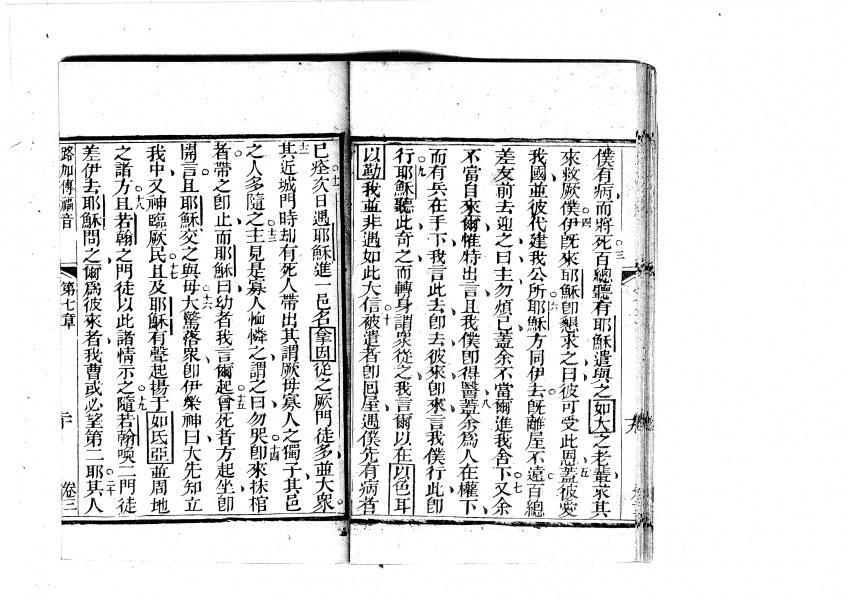 僕有病而將死百總聽有耶穌遣與之如大之老輩求其
來救厥僕伊旣來耶穌卽懇求之曰彼可受此恩蓋彼愛
我國並彼代建我公所耶穌方同伊去旣離屋不遠百總
差友前去迎之曰主勿煩已蓋余不當爾進我舍下又余
不當自來爾惟特出言且我僕卽得醫蓋余爲人在權下
而有兵在手下我言此去卽去彼來卽來言我僕行此卽
行耶穌聽此奇之而轉身謂衆從之我言爾以在以色耳
以勒我並非遇如此大信被遣者卽囘屋遇僕先有病者
已痊次日遇耶穌進一邑名拿因從之厥門徒多並大衆
其近城門時却有死人帶出其謂厥母寡人之獨子其邑
之人多隨之主見是寡人恤憐之謂之曰勿哭卽來抹棺
者帶之卽止而耶穌曰幼者我言爾起曾死者方起坐卽
開言且耶穌交之與母大驚落衆卽伊樂神曰大先知立
我中又神臨厥民且及耶穌有聲起揚于如氐亞並周地
之諸方且若翰之門徒以此諸情示之隨若翰喚二門徒
差伊去耶穌問之爾爲彼來者我曹或必望第二耶其人
路加傳福音 第七章 二十 卷三